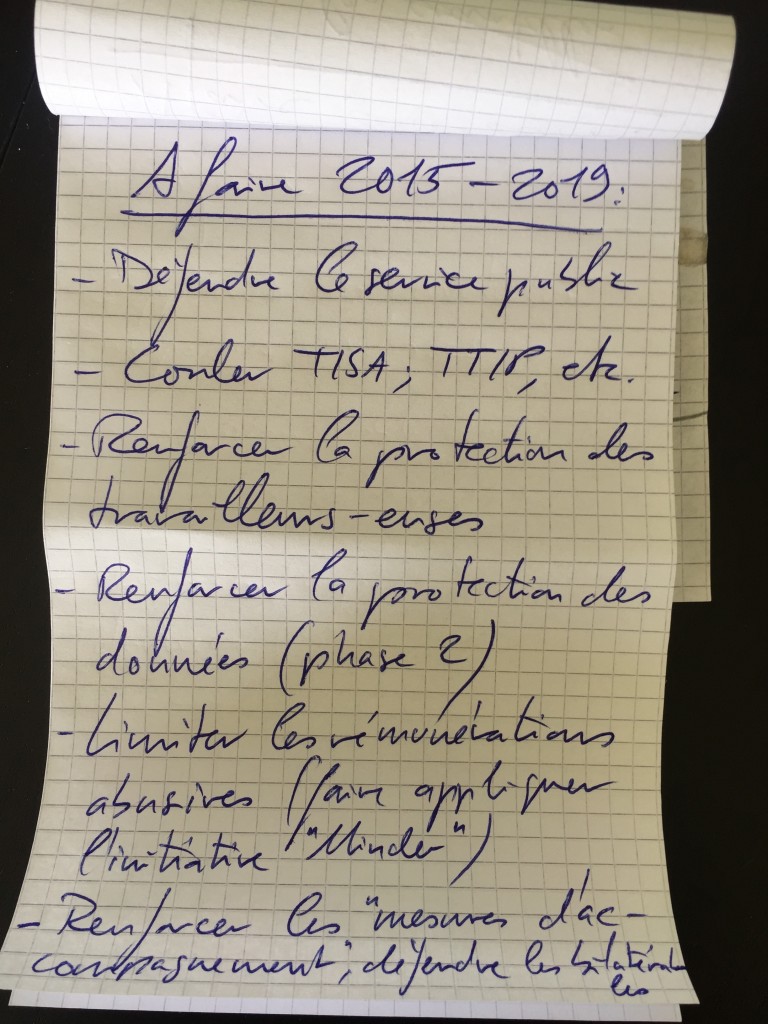 A faire 2015-2019:
- Défendre le service public
- Couler TISA, TTIP, etc.
- Renforcer la protection des
travailleurs-euses
- Renforcer la protection des
données (phase 2)
- Limiter les rémunérations
abusives (faire appliquer
l'initiative "Minder")
- Renforcer les "mesures d'ac-
compagnement", défendre les bilatérales